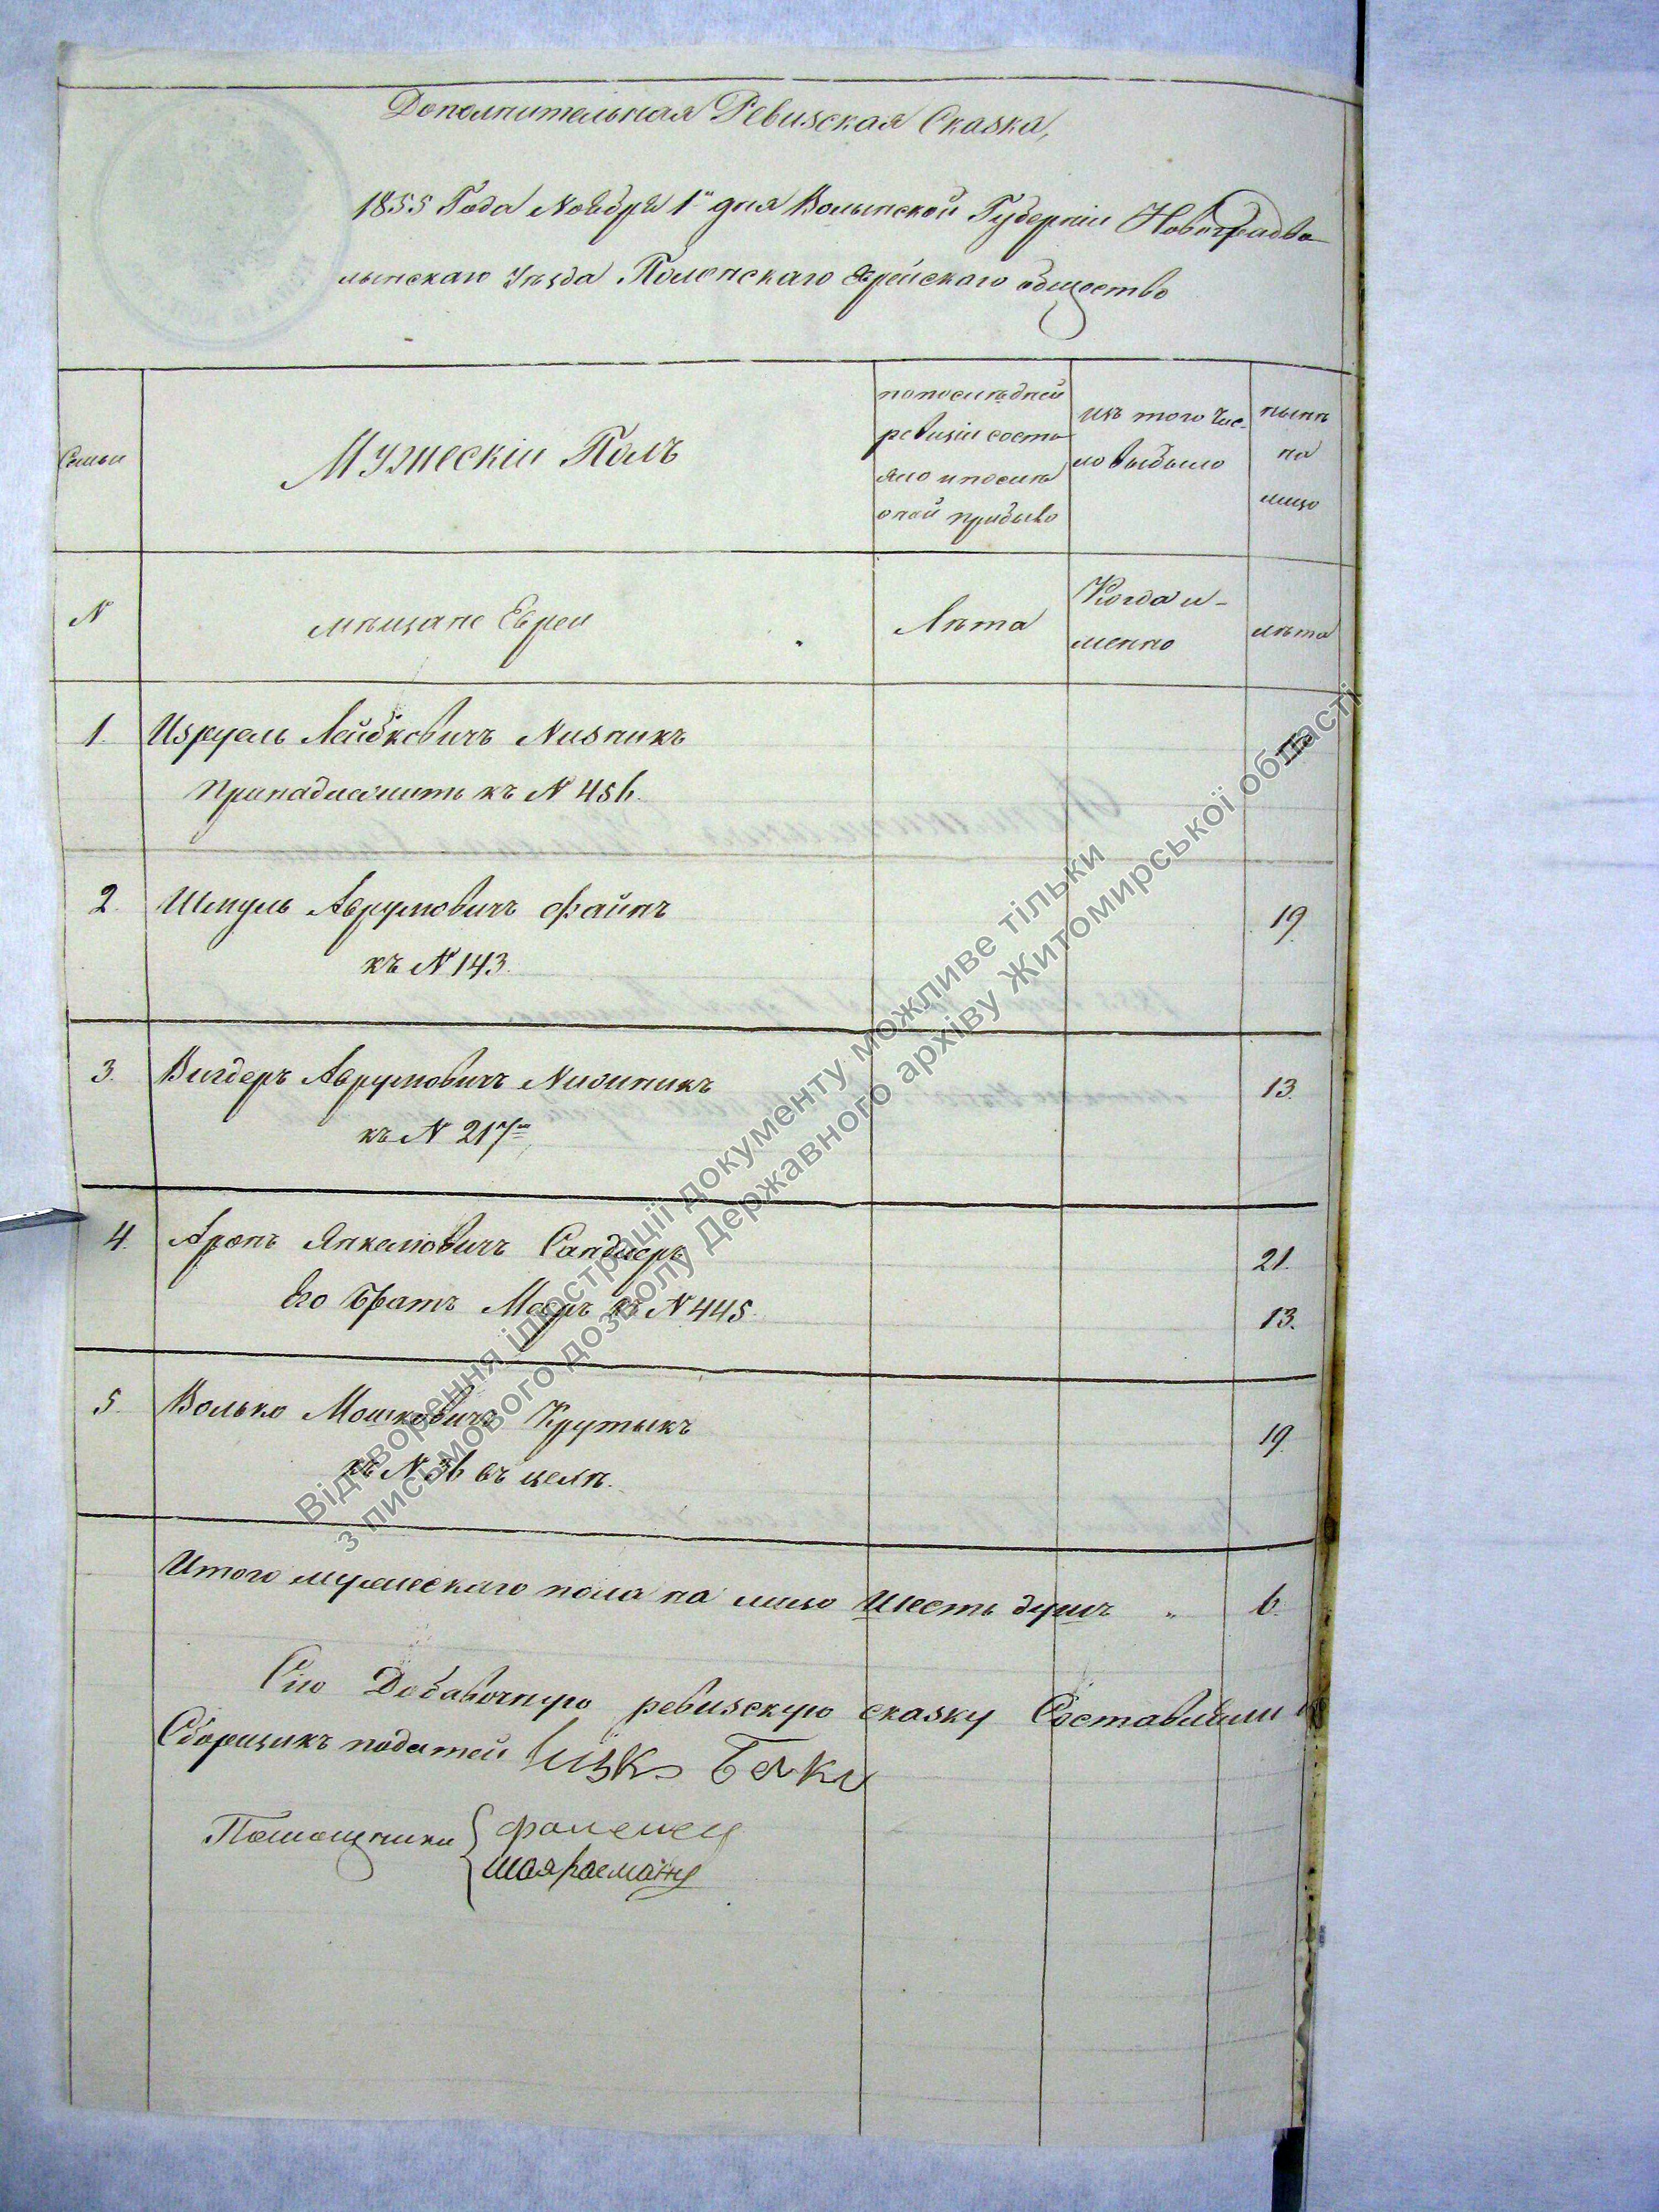 Дополнительная Ревизская Сказка,
1855 Года Ноября 1го дня Волынской Губерніи Новоградво
лынскаго Уѣзда Полонскаго Еврейскаго общество
Семьи
Мужескій Полъ
по послѣдней
ревизіи состо
яло и послѣ
оной прибыло
изъ того чис-
ло выбыло
нынѣ
на
лицо
N
мѣщане Евреи
Лѣта
Когда и-
менно
лѣта
1. Израель Лейбковичъ
Принадлежитъ къ N 456.
2. Шмуль Аврумовичъ Файнъ 19.
къ N 143.
3. Вигдеръ Аврумовичъ 13.
къ N 217му
4. Аронъ Янкелювичъ Сандлеръ 21.
Его братъ Мееръ къ N 445. 13.
5. Волько Мошковичъ Крутыкъ 19.
къ N 36 въ целѣ.
Итого мужескаго пола на лицо Шесть душъ „ 6.
Сію Добавочную ревизскую сказку Составили
Сборщикъ податей Ицко
Помощники
Відтворення ілюстрації документу можливе тільки
з письмового дозволу Державного архіву Житомирської області